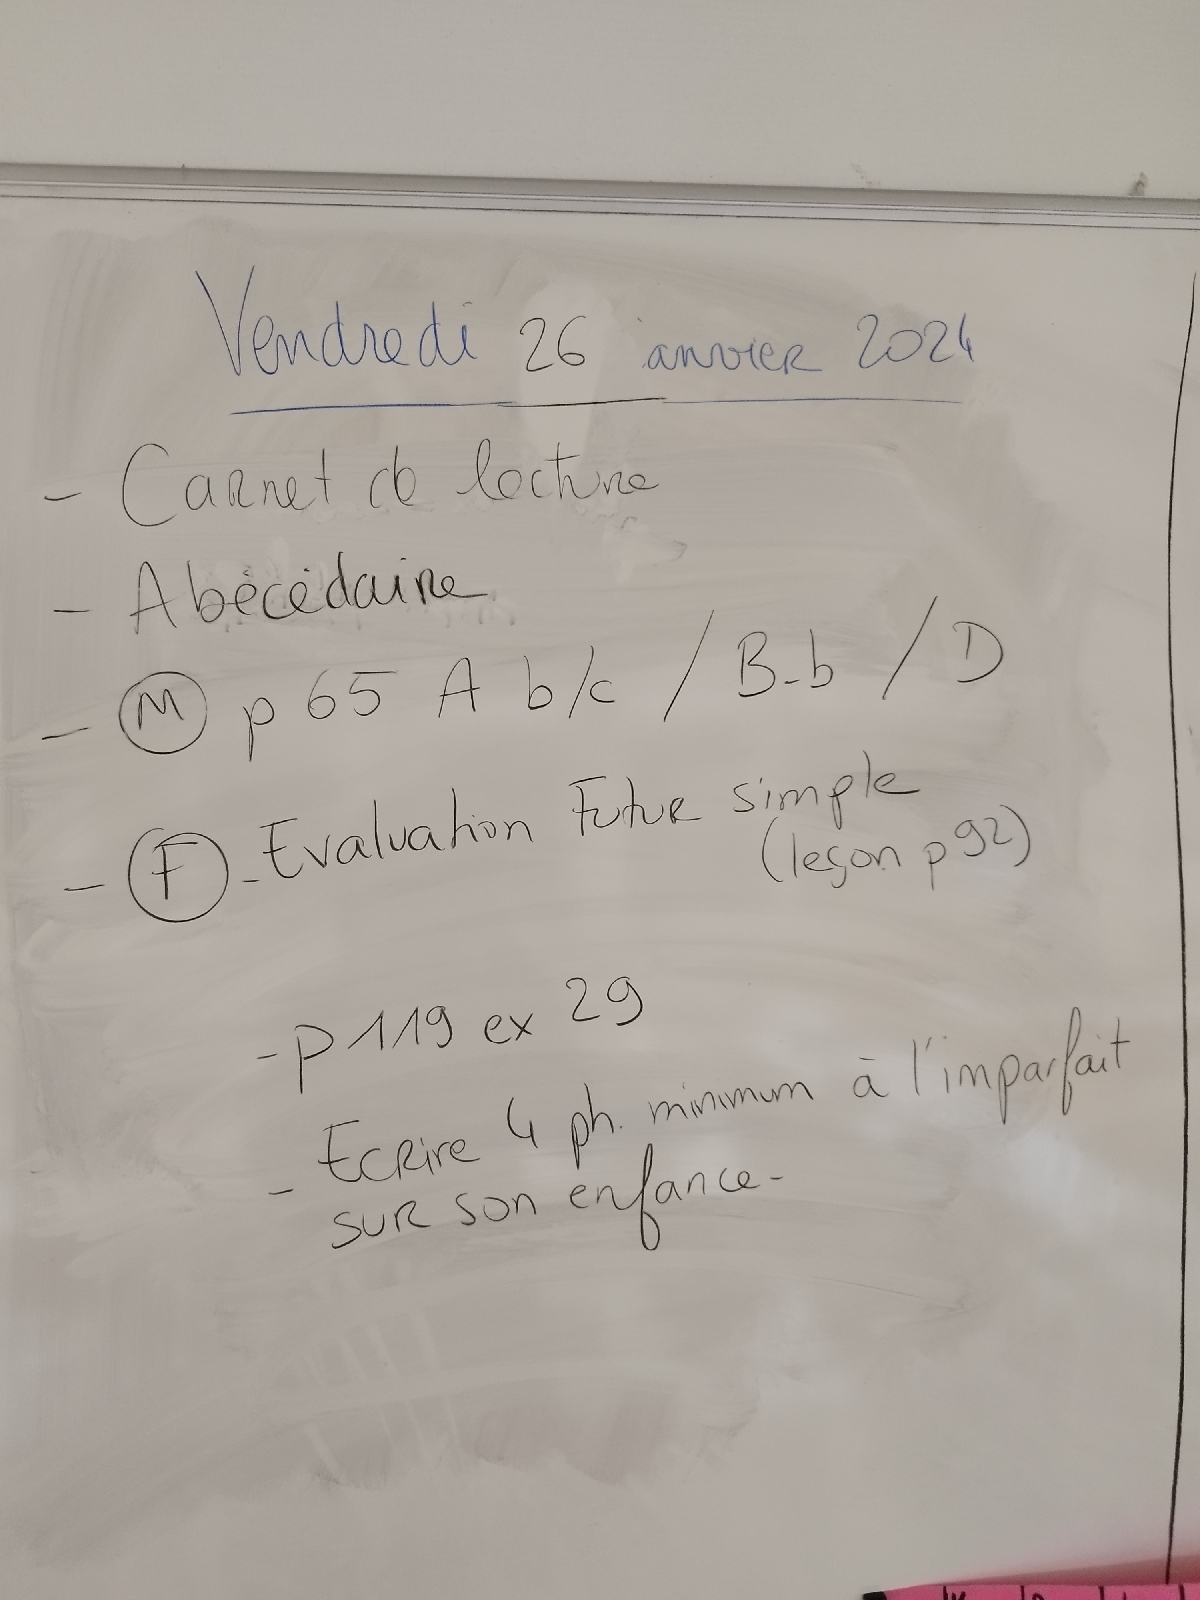 Vendredi 26 janvier 2024
- Carnet de lecture
- Abécédaire
- M p 65 A b/c / B-b / D
- F - Evaluation Futur simple
(leçon p 92)
- p 119 ex 29
- Ecrire 4 ph. minimum à l'imparfait
sur son enfance-